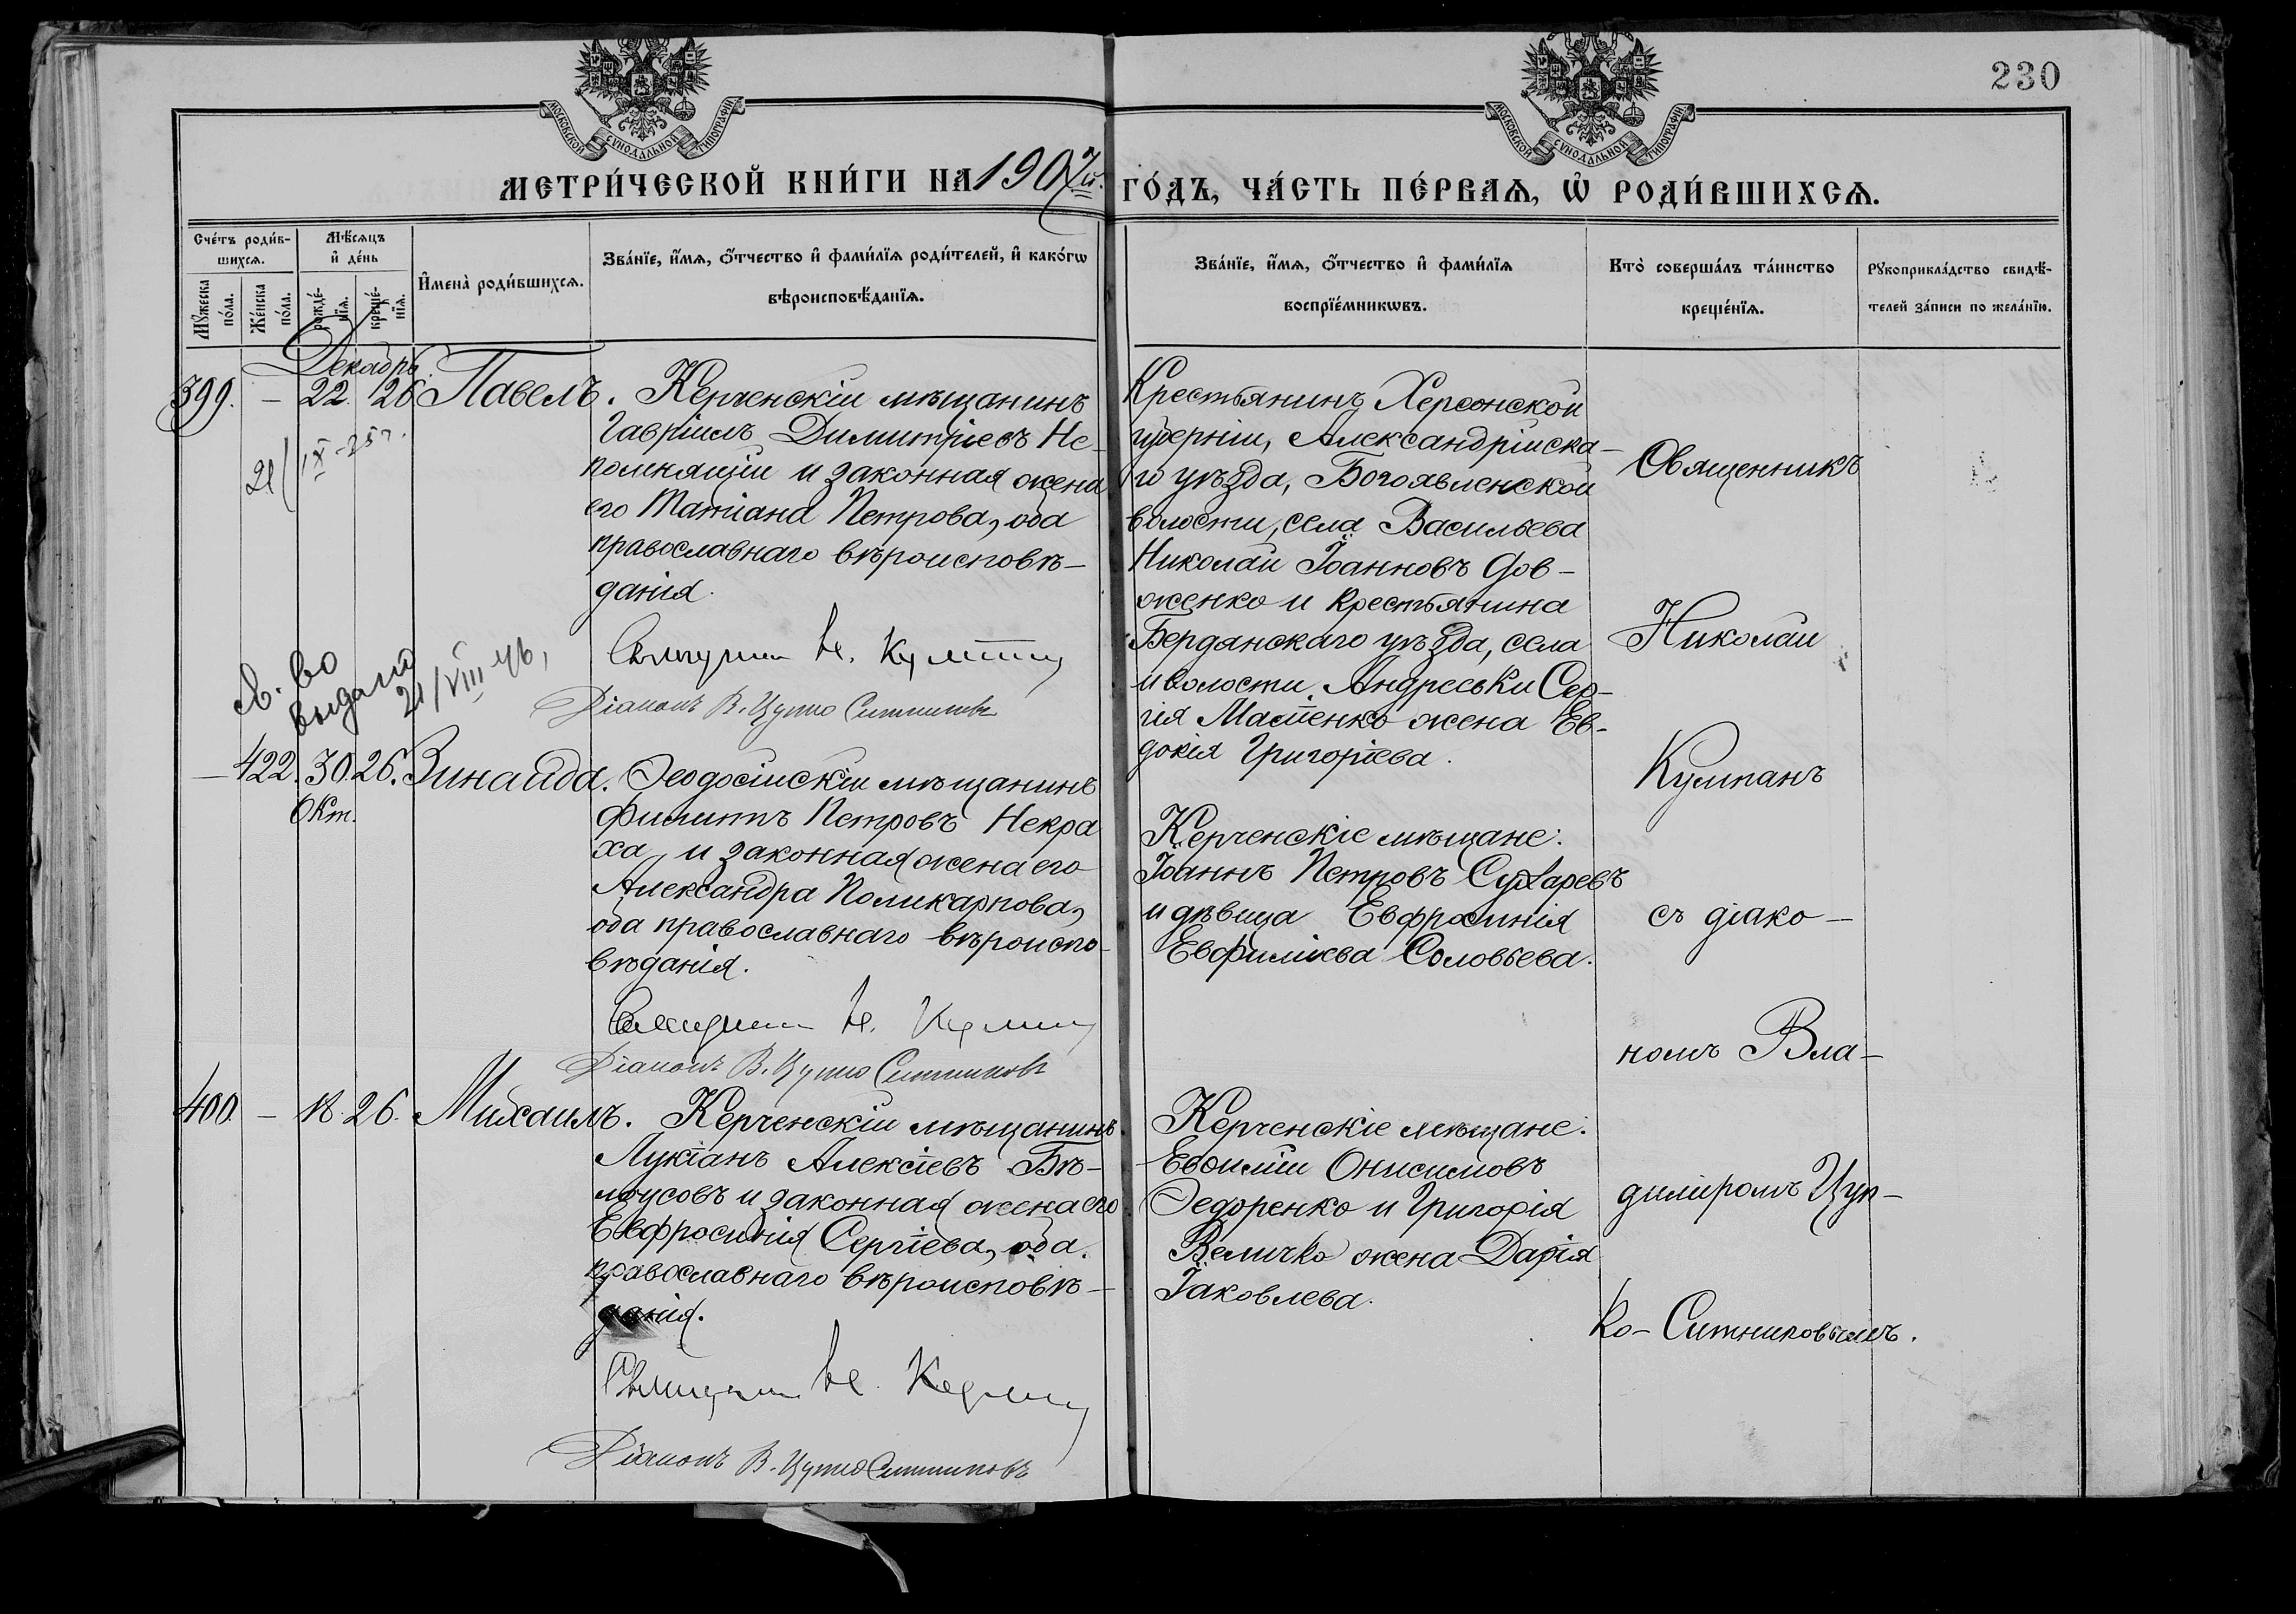 230
МОСКОВСКОЙ СѴНОДАЛЬНОЙ ТИПОГРАФІИ
МОСКОВСКОЙ СѴНОДАЛЬНОЙ ТИПОГРАФІИ
МЕТРИ́ЧЕСКОЙ КНИ́ГИ НА 1907й. ГО́ДЪ, ЧА́СТЬ ПЕ́РВАѦ, Ѡ҆ РОДИ́ВШИХСѦ.
Сче́тъ роди́в-
шихсѧ.
Мѣ́сѧцъ
и҆ де́нь
Мꙋ́жеска
по́ла.
Же́нска
по́ла.
рожде́-
нїѧ.
креще́-
нїѧ.
И҆мена̀ роди́вшихсѧ.
Зва́нїе, и҆́мѧ, ѻ҆́тчество и҆ фами́лїѧ роди́телей, и҆ како́гѡ
вѣроисповѣ́данїѧ.
Зва́нїе, и҆́мѧ, ѻ҆́тчество и҆ фами́лїѧ
воспрїе́мникѡвъ.
Кто̀ соверша́лъ та́инство
креще́нїѧ.
Рꙋкоприкла́дство свидѣ́-
телей за́писи по жела́нїю.
Декабрь
399. — 22. 26 Павелъ.
Керченскій мѣщанинъ
Гавріилъ Димитріевъ Не-
помнящій и законная жена
его Татіана Петрова, оба
православнаго вѣроисповѣ-
данія.
21/IX-25 г.
Священникъ Н. Кулпан
Діаконъ В. Цупко Ситниковъ
Крестьянинъ Херсонской
губерніи, Александрійска-
го уѣзда, Богоявленской
волости, села Васильева
Николай Іоанновъ Дов-
женко и крестьянина
Бердянскаго уѣзда, села
и волости Андреевки Сер-
гія Матенко жена Ев-
докія Григоріева.
Священникъ
Николай
Кулпанъ
съ діако-
номъ Вла-
диміромъ Цуп-
ко-Ситниковымъ.
св. во
выдано
— 422. 30. 26. Зинаида.
Окт.
Ѳеодосійскій мѣщанинъ
Филиппъ Петровъ Некра
ха и законная жена его
Александра Поликарпова,
оба православнаго вѣроиспо-
вѣданія.
Священник Н. Кулпан
Діаконъ В. Цупко Ситниковъ
Керченскіе мѣщане:
Іоаннъ Петровъ Сухаревъ
и дѣвица Евфросинія
Евфиміева Соловьева.
400. — 18. 26. Михаилъ.
Керченскій мѣщанинъ
Лукіанъ Алексіевъ Бѣ-
лоусовъ и законная жена его
Евфросинія Сергіева, оба
православнаго вѣроисповѣ-
данія.
Священник Н. Кулпан
Діаконъ В. Цупко Ситниковъ
Керченскіе мѣщане:
Евфимій Онисимовъ
Ѳедоренко и Григорія
Величко жена Дарія
Іаковлева.